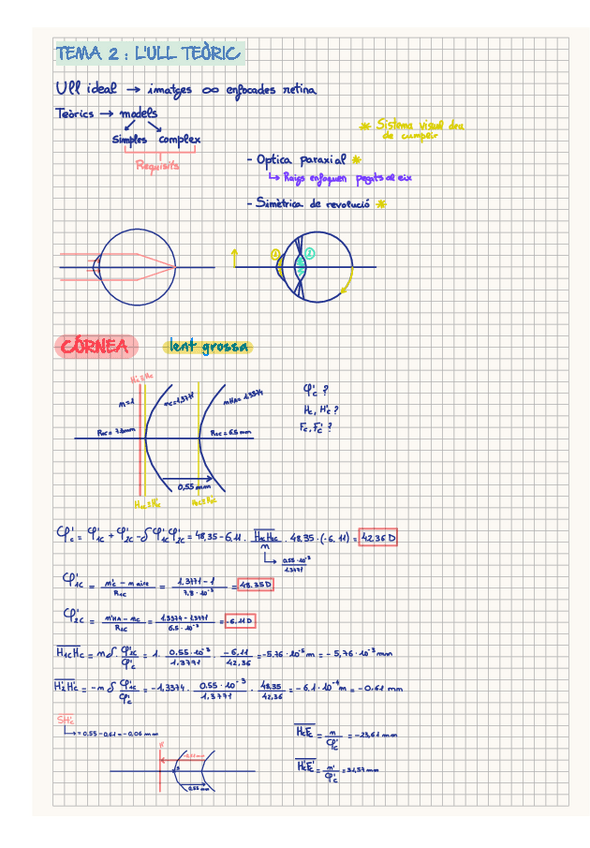 TEMA 2 : L'ULL TEÒRIC
Ull ideal → imatges ∞ enfocades retina
Teòrics → models
Simples complex
Requisits
* Sistema visual deu de cumplir
- Optica paraxial *
↳ Raigs enfoquen pegats al eix
- Simètrica de revolució *
CÒRNEA lent grossa
n=1
nc=1,3771
nHA=1,3374
R1c= 7.8mm
R2c= 6.5 mm
0,55 mm
φ'c ?
Hc, H'c ?
Fc, F'c ?
φ'c = φ'1c + φ'2c - δ φ'1c φ'2c = 48,35 - 6,11 · H1cH2c / n · 48,35 · (-6.11) = 42.36 D
↳ 0,55·10⁻³ / 1,3771
φ'1c = n'c - n aire / R1c = 1.3771 - 1 / 7.8 · 10⁻³ = 48.35D
φ'2c = n'HA - nc / R2c = 1.3374 - 1,3771 / 6.5 · 10⁻³ = -6.11D
H1cHc = n δ φ'2c / φ'c = 1 · 0,55 · 10⁻³ / 1,3771 · -6,11 / 42,36 = -5,76 · 10⁻⁵ m = -5,76 · 10⁻² mm
H'2H'c = -n δ φ'1c / φ'c = -1,3374 · 0.55 · 10⁻³ / 1,3771 · 48,35 / 42,36 = -6.1 · 10⁻⁴ m = -0.61 mm
SH'c
↳ = 0.55 - 0.61 = -0.06 mm
HcFc = n / φ'c = -23,61 mm
H'cF'c = n' / φ'c = 31,57 mm
0,55 mm